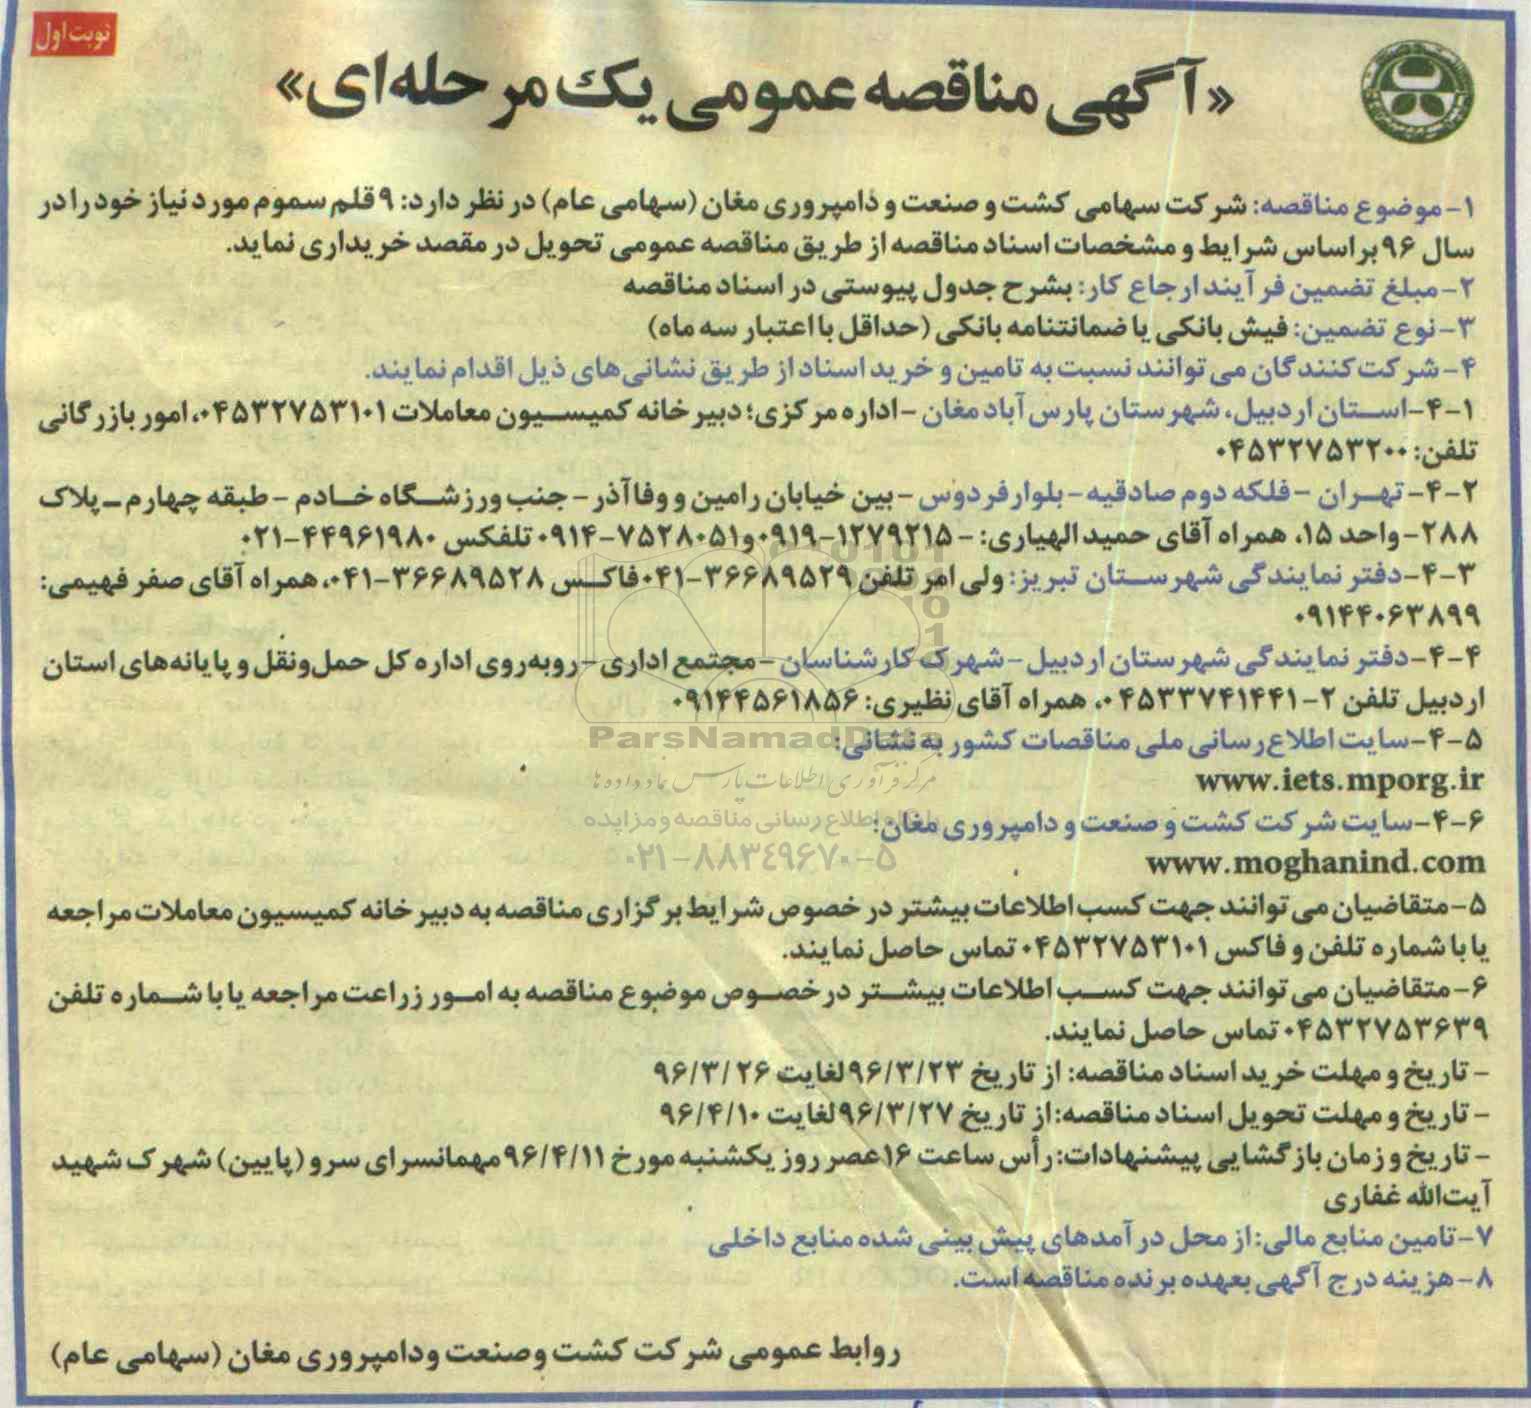 نوبت اول
«آگهی مناقصه عمومی یک مرحله‌ای»
۱- موضوع مناقصه: شرکت سهامی کشت و صنعت و دامپروری مغان (سهامی عام) در نظر دارد: ۹ قلم سموم مورد نیاز خود را در
سال ۹۶ بر اساس شرایط و مشخصات اسناد مناقصه از طریق مناقصه عمومی تحویل در مقصد خریداری نماید.
۲- مبلغ تضمین فرآیند ارجاع کار: بشرح جدول پیوستی در اسناد مناقصه
۳- نوع تضمین: فیش بانکی یا ضمانتنامه بانکی (حداقل با اعتبار سه ماه)
۴- شرکت کنندگان می توانند نسبت به تامین و خرید اسناد از طریق نشانی‌های ذیل اقدام نمایند.
۴-۱- استان اردبیل، شهرستان پارس آباد مغان - اداره مرکزی؛ دبیرخانه کمیسیون معاملات ۰۴۵۳۲۷۵۳۱۰۱، امور بازرگانی
تلفن: ۰۴۵۳۲۷۵۳۲۰۰
۴-۲- تهران - فلکه دوم صادقیه - بلوار فردوس - بین خیابان رامین و وفا آذر - جنب ورزشگاه خادم - طبقه چهارم - پلاک
۲۸۸- واحد ۱۵، همراه آقای حمید الهیاری: - ۰۹۱۹-۱۲۷۹۲۱۵ و ۰۹۱۴-۷۵۲۸۰۵۱ تلفکس ۰۲۱-۴۴۹۶۱۹۸۰
۴-۳- دفتر نمایندگی شهرستان تبریز: ولی امر تلفن ۰۴۱-۳۶۶۸۹۵۲۹ فاکس ۰۴۱-۳۶۶۸۹۵۲۸، همراه آقای صفر فهیمی:
۰۹۱۴۴۰۶۳۸۹۹
۴-۴- دفتر نمایندگی شهرستان اردبیل - شهرک کارشناسان - مجتمع اداری - روبه‌روی اداره کل حمل‌ونقل و پایانه‌های استان
اردبیل تلفن ۲-۰۴۵۳۳۷۴۱۴۴۱، همراه آقای نظیری: ۰۹۱۴۴۵۶۱۸۵۶
۴-۵- سایت اطلاع‌رسانی ملی مناقصات کشور به نشانی:
ParsNamadData
www.iets.mporg.ir
مرکز فرآوری اطلاعات پارس نماد داده ها
۴-۶- سایت شرکت کشت و صنعت و دامپروری مغان:
پایگاه اطلاع رسانی مناقصه و مزایده
www.moghanind.com
۰۲۱-۸۸۳۴۹۶۷۰-۵
۵- متقاضیان می توانند جهت کسب اطلاعات بیشتر در خصوص شرایط برگزاری مناقصه به دبیرخانه کمیسیون معاملات مراجعه
یا با شماره تلفن و فاکس ۰۴۵۳۲۷۵۳۱۰۱ تماس حاصل نمایند.
۶- متقاضیان می توانند جهت کسب اطلاعات بیشتر در خصوص موضوع مناقصه به امور زراعت مراجعه یا با شماره تلفن
۰۴۵۳۲۷۵۳۶۳۹ تماس حاصل نمایند.
- تاریخ و مهلت خرید اسناد مناقصه: از تاریخ ۹۶/۳/۲۳ لغایت ۹۶/۳/۲۶
- تاریخ و مهلت تحویل اسناد مناقصه: از تاریخ ۹۶/۳/۲۷ لغایت ۹۶/۴/۱۰
- تاریخ و زمان بازگشایی پیشنهادات: رأس ساعت ۱۶ عصر روز یکشنبه مورخ ۹۶/۴/۱۱ مهمانسرای سرو (پایین) شهرک شهید
آیت‌الله غفاری
۷- تامین منابع مالی: از محل درآمدهای پیش بینی شده منابع داخلی
۸- هزینه درج آگهی بعهده برنده مناقصه است.
روابط عمومی شرکت کشت وصنعت ودامپروری مغان (سهامی عام)